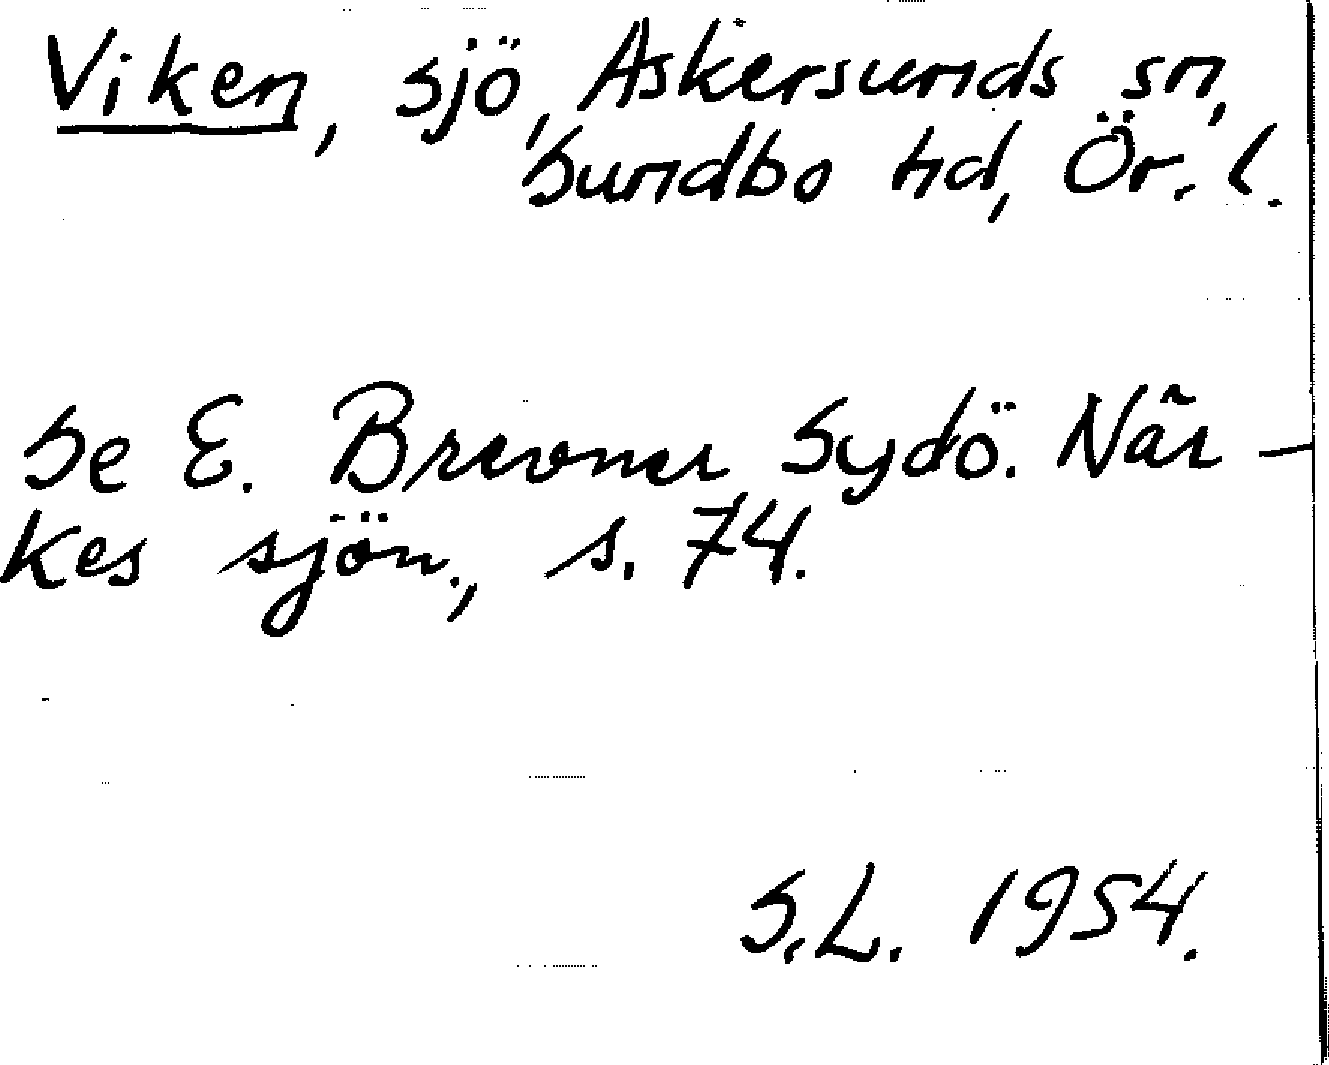 Viken, sjö, Askersunds sn,
Sundbo hd, Ör. l.
Se E. Brevner Sydö. När-
kes sjön., s. 74.
S.L. 1954.